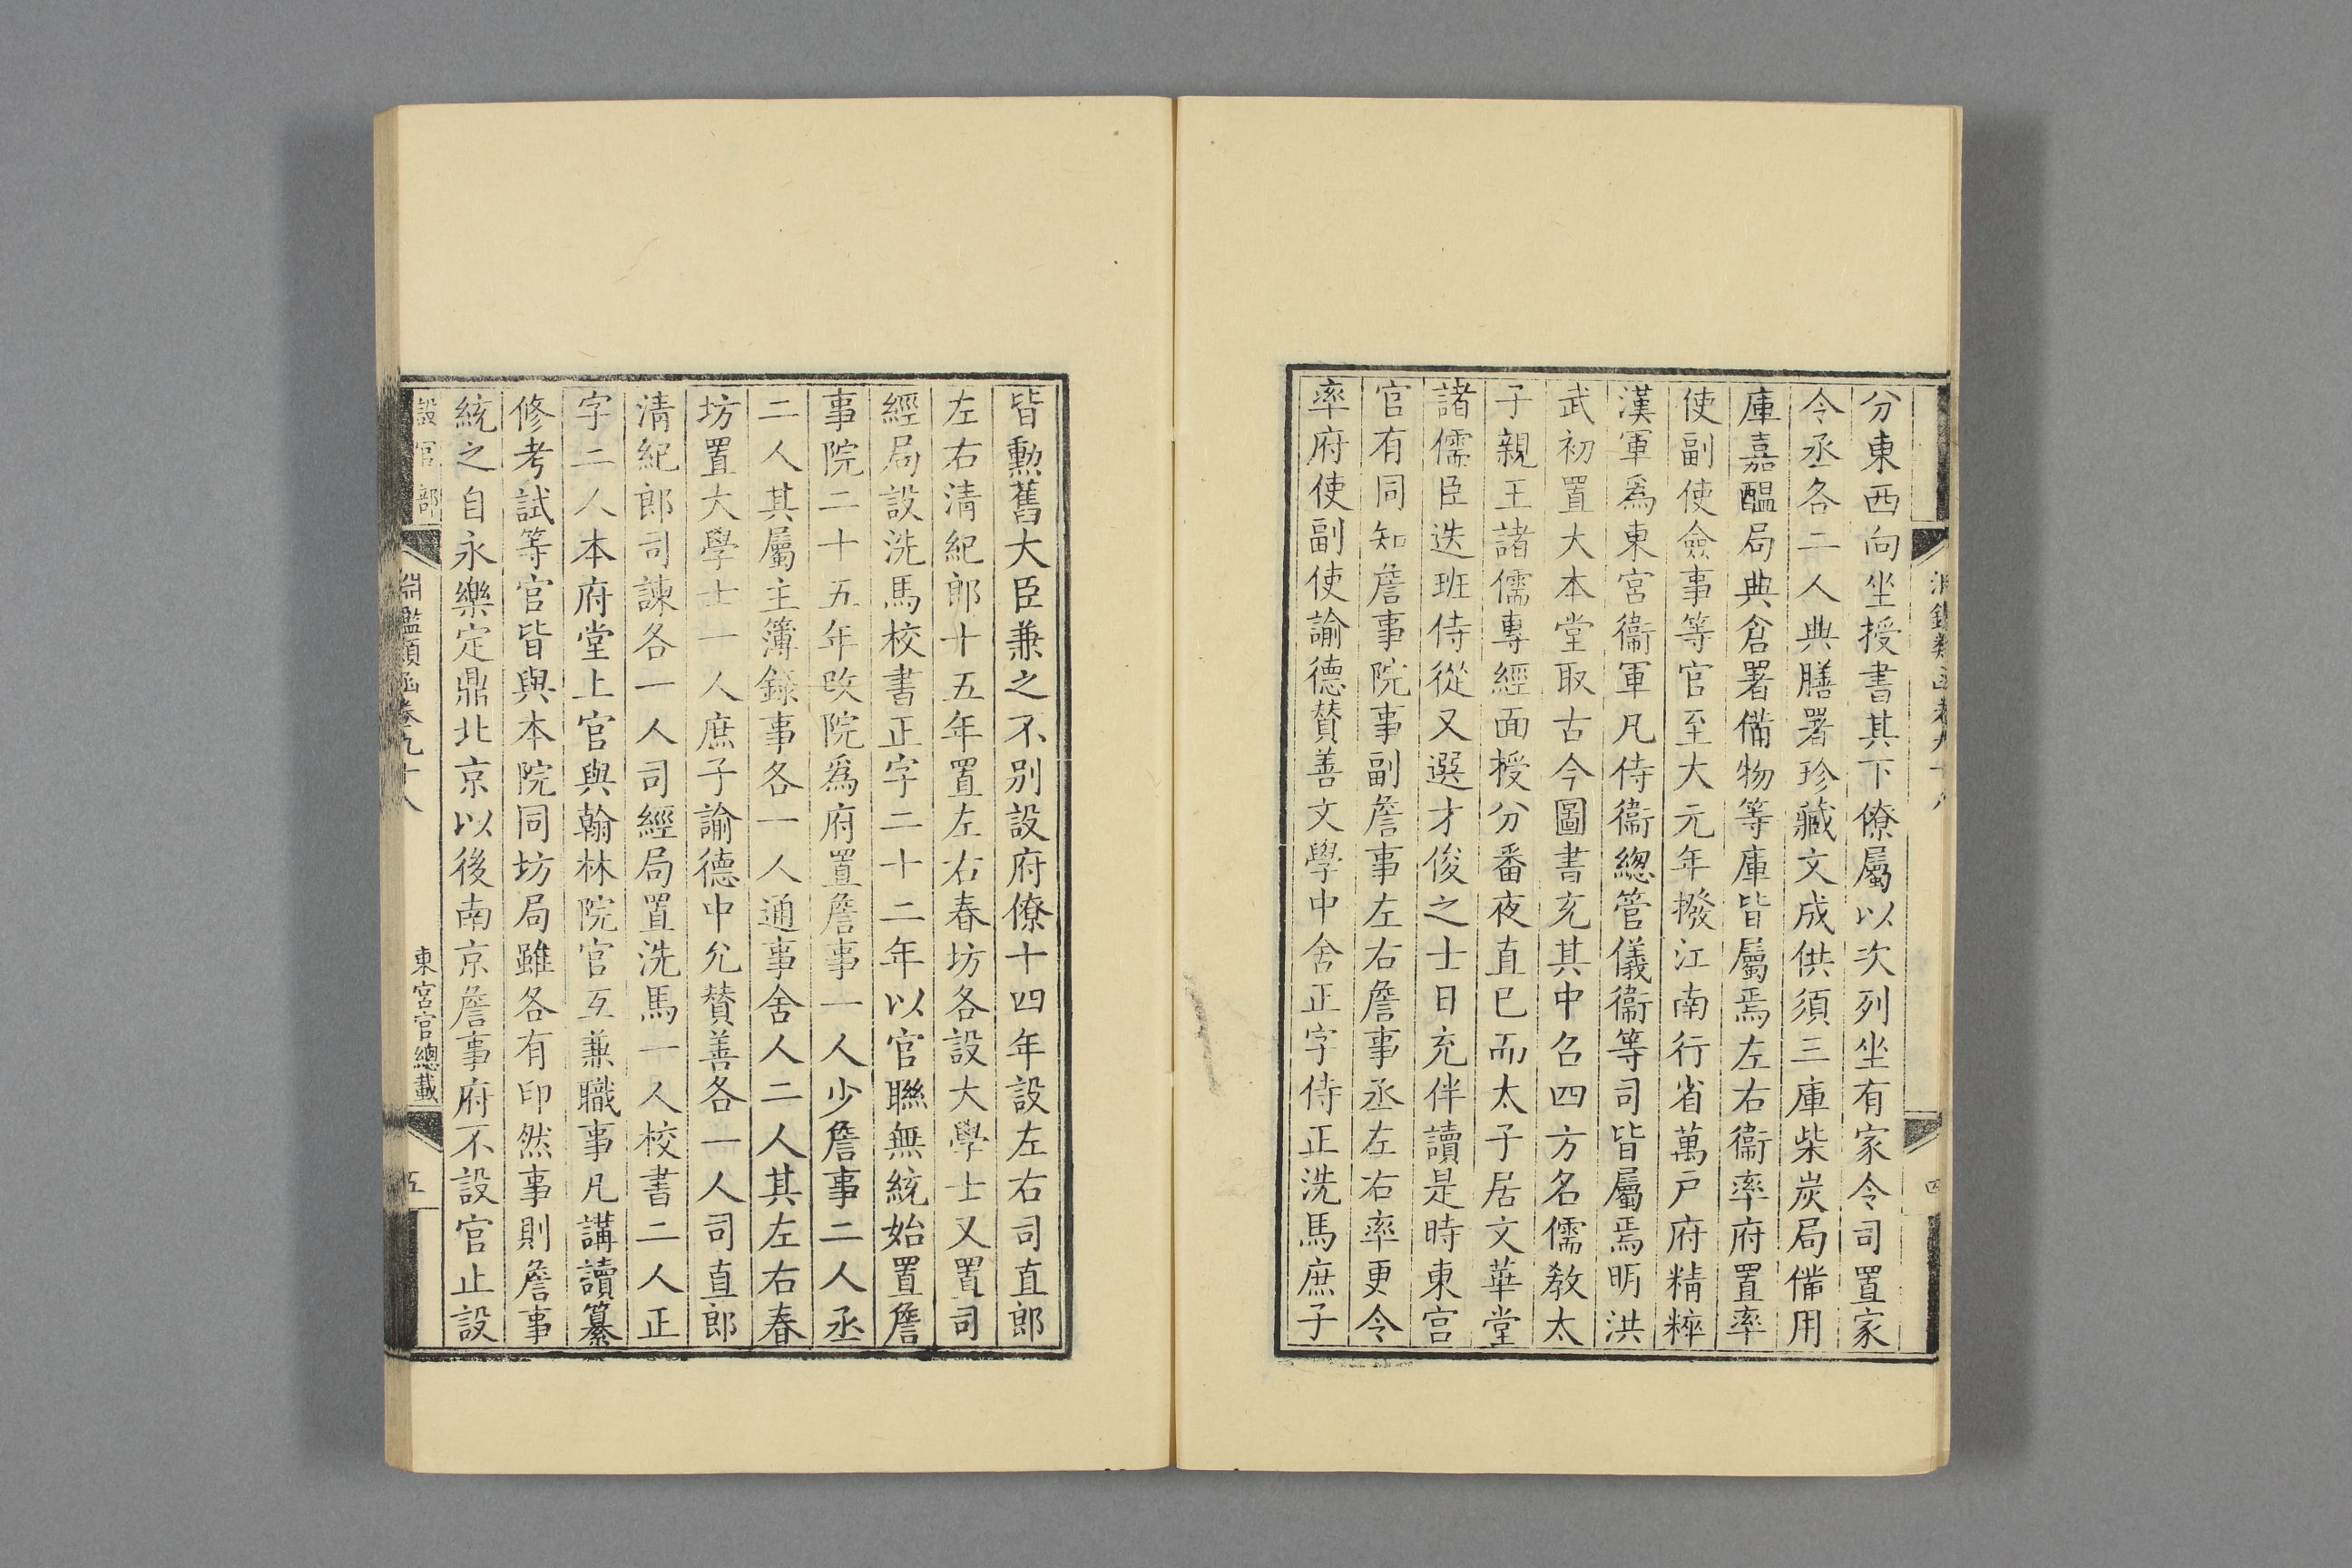 分東西向坐授書其下僚屬以次列坐有家令司置家
令丞各二人典膳署珍藏文成供須三庫柴炭局備用
庫嘉醞局典倉署備物等庫皆屬焉左右衞率府置率
使副使僉事等官至大元年撥江南行省萬戸府精粹
漢軍爲東宮衞軍凡侍衞總管儀衞等司皆屬焉明洪
武初置大本堂取古今圖書充其中召四方名儒教太
子親王諸儒專經面授分番夜直已而太子居文華堂
諸儒臣迭班侍從又選才俊之士日充伴讀是時東宮
官有同知詹事院事副詹事左右詹事丞左右率更令
率府使副使諭德贊善文學中舍正字侍正洗馬庶子
皆勲舊大臣兼之不別設府僚十四年設左右司直郎
左右清紀郎十五年置左右春坊各設大學士又置司
經局設洗馬校書正字二十二年以官聯無統始置詹
事院二十五年改院爲府置詹事一人少詹事二人丞
二人其屬主簿錄事各一人通事舍人二人其左右春
坊置大學士一人庶子諭德中允贊善各一人司直郎
清紀郎司諫各一人司經局置洗馬一人校書二人正
字二人本府堂上官與翰林院官互兼職事凡講讀纂
修考試等官皆與本院同坊局雖各有印然事則詹事
統之自永樂定鼎北京以後南京詹事府不設官止設
設官部 淵鑑類函卷九十八 東宮官總載 五